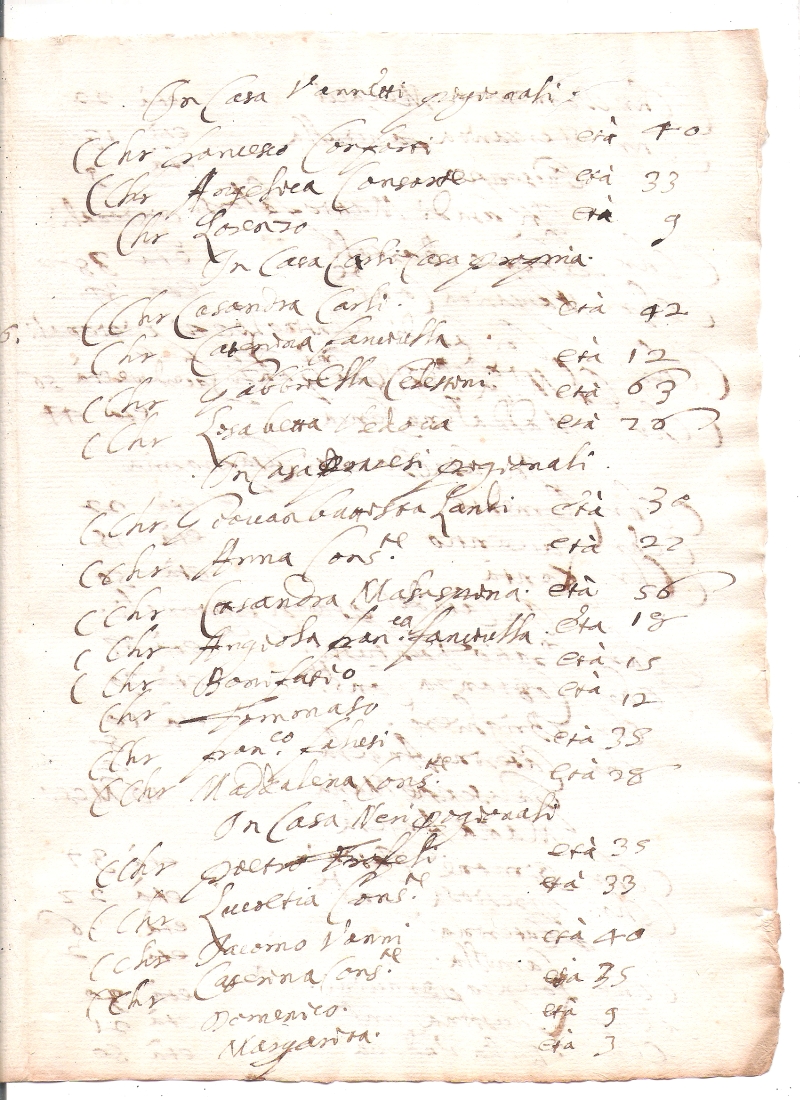 In Casa Vannetti pigionali.
C Chr Francesco Conforti età 40
C Chr Angelica Consorte età 33
Chr Lorenzo età 9
In Casa Carli Casa propria.
C Chr Casandra Carli. età 42
Chr Caterina fanciulla età 12
C Chr Gabbriella Celestini età 63
C Chr Lisabetta età 76
In Casa pigionali.
C Chr Giovan Battista Landi età 30
C Chr Anna Cons.te età 27
C Chr Casandra Malaspina. età 56
C Chr Angiola Fran.ca fanciulla. età 18
C Chr Bonifatio età 15
Chr Tommaso età 12
C Chr Fran.co età 38
C Chr Maddalena Cons.te età 28
In Casa Neri pigionali
C Chr Pietro età 35
C Chr Lucretia Cons.te età 33
C Chr Jacomo Vanni età 40
C Chr Catterina Cons.te età 35
Domenico. età 9
Margarita. età 3